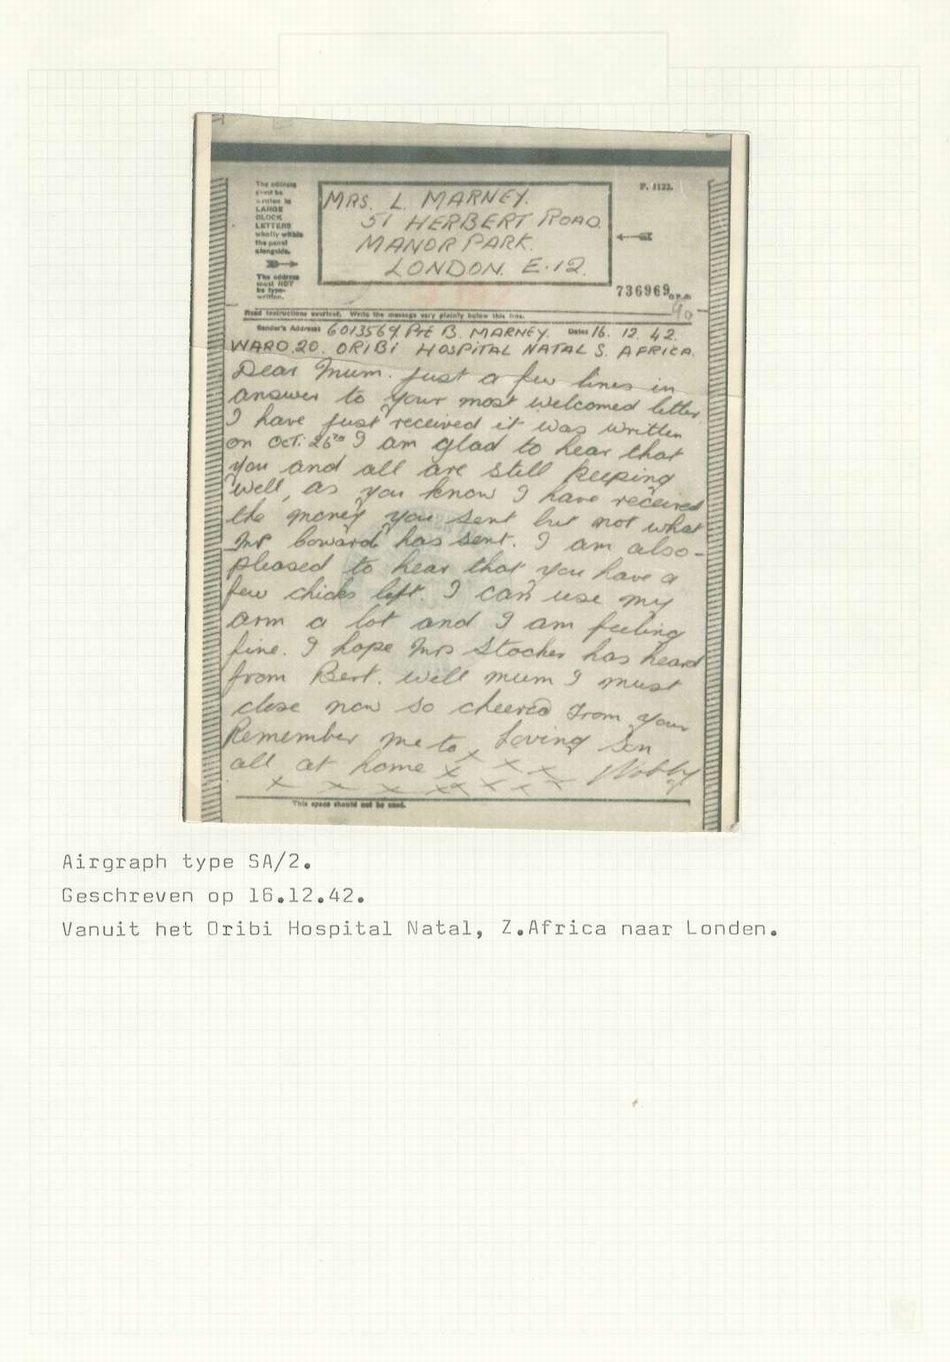 The address
must be
written in
LARGE
BLOCK
LETTERS
wholly within
the panel
alongside.
The address
must NOT
be type-
written.
MRS. L. MARNEY.
51 HERBERT ROAD.
MANOR PARK.
LONDON. E.12.
P. 1122.
736969
Read instructions overleaf. Write the message very plainly below this line.
Sender's Address 6013569 Pte B. MARNEY. Date 16. 12. 42.
WARD.20. ORIBI HOSPITAL NATAL S. AFRICA.
Dear Mum. Just a few lines in
answer to your most welcomed letter
I have just received it was written
on Oct. 26th I am glad to hear that
you and all are still keeping
well, as you know I have received
the money you sent but not what
Mr has sent. I am also-
pleased to hear that you have a
few chicks left. I can use my
arm a lot and I am feeling
fine. I hope Mrs has heard
from Bert. well mum I must
close now so cheerio From your
Remember me to Loving Son
all at home x x x x Nobby
x x x x x x x x
This space should not be used.
Airgraph type SA/2.
Geschreven op 16.12.42.
Vanuit het Oribi Hospital Natal, Z.Africa naar Londen.